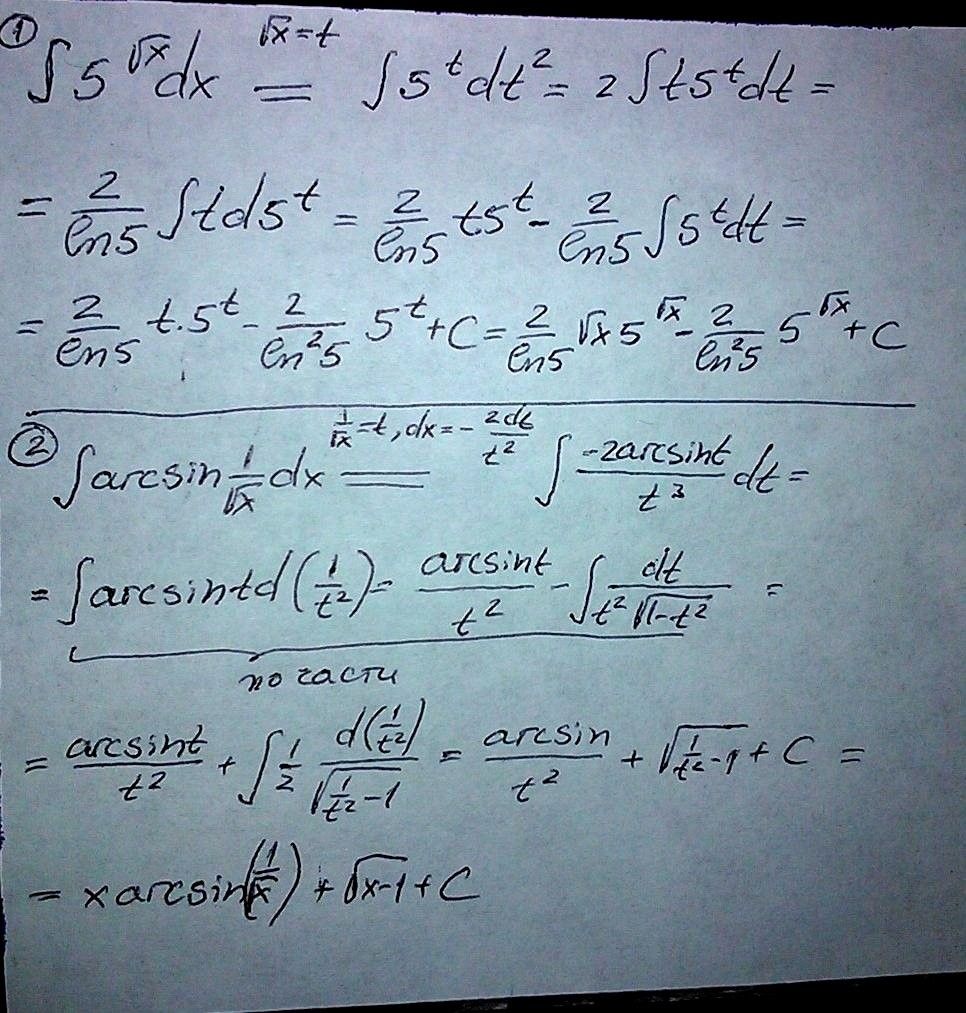 ① ∫5^√x dx =^(√x=t) ∫5^t dt² = 2∫t5^t dt =
= 2/ln5 ∫td5^t = 2/ln5 t5^t - 2/ln5 ∫5^t dt =
= 2/ln5 t·5^t - 2/ln²5 5^t + C = 2/ln5 √x 5^√x - 2/ln²5 5^√x + C
② ∫arcsin 1/√x dx =^(1/√x=t, dx=-2dt/t²) ∫ -2arcsint/t³ dt =
= ∫arcsintd(1/t²) = arcsint/t² - ∫dt/(t²√(1-t²)) =
по части
= arcsint/t² + ∫1/2 d(1/t²)/√(1/t²-1) = arcsin/t² + √(1/t²-1) + C =
= x arcsin(1/√x) + √(x-1) + C